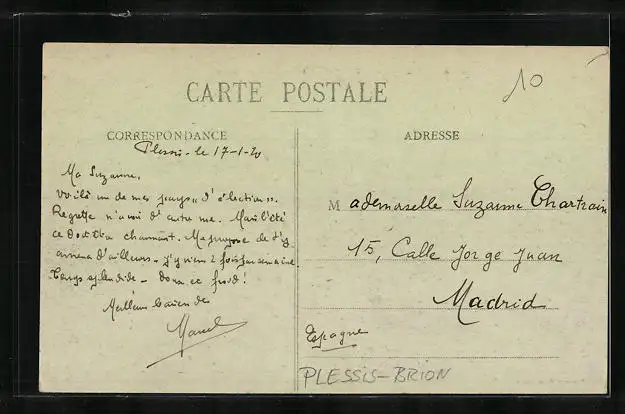 10
CARTE POSTALE
CORRESPONDANCE
ADRESSE
Plessis-le 17-1-20
Ma Suzanne,
Voilà un de mes pays "d'élection".
Regrette n'avoir d'autre vue. Mais l'été
ce doit être charmant. Me propose de t'y
amener d'ailleurs - j'y viens 2 fois par semaine
Temps splendide - doux ce froid!
Meilleurs baisers de
Marcel
Mademoiselle Suzanne Chartrain
15, Calle Jorge Juan
Madrid
Espagne
PLESSIS-BRION